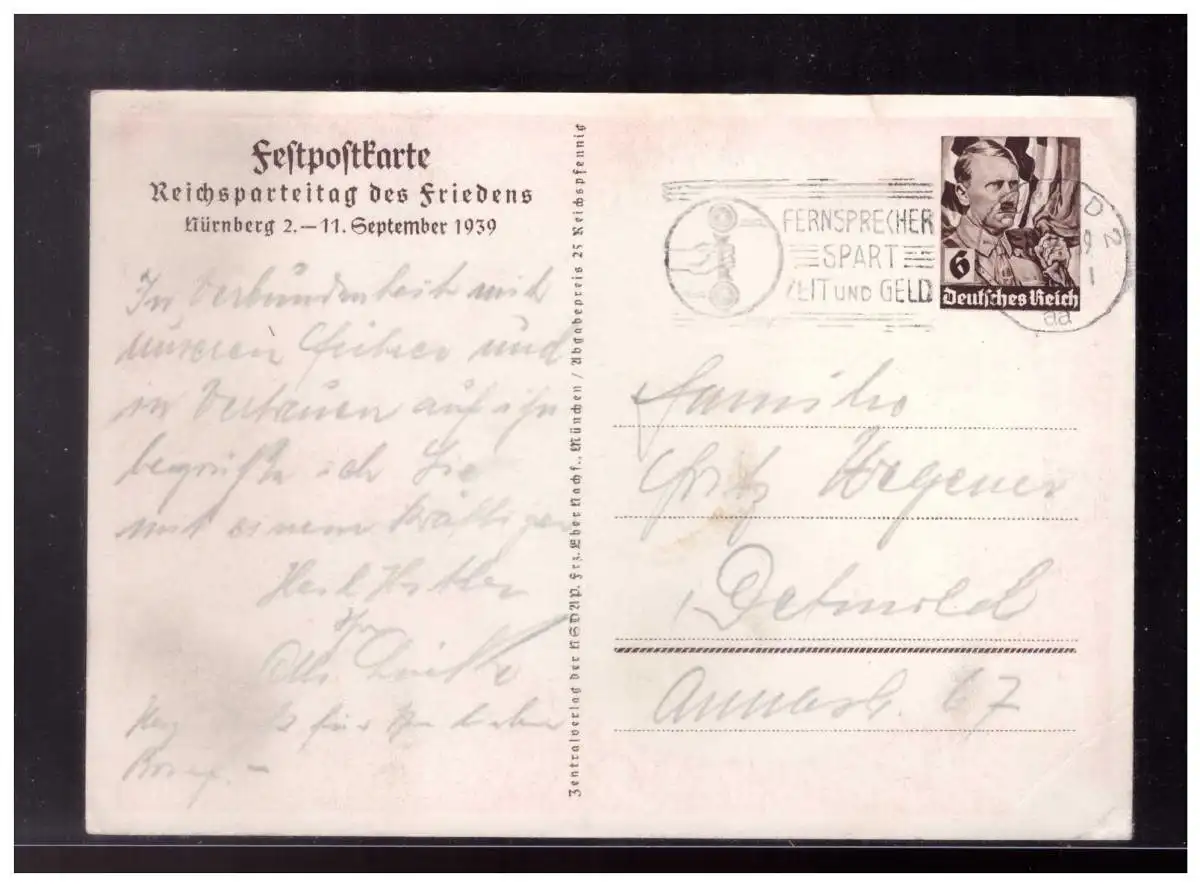 Festpostkarte
Reichsparteitag des Friedens
Nürnberg 2.–11. September 1939
In Verbundenheit mit
unseren Führer und
in Vertrauen auf ihn
begrüße ich Sie
mit einem kräftigen
Heil Hitler
Ihr
Otto
Zentralverlag der NSDAP. Frz. Eher Nachf., München / Abgabepreis 25 Reichspfennig
FERNSPRECHER
SPART
ZEIT UND GELD
D 2
aa
6
Deutsches Reich
Familie
Fritz Wegener
Detmold
Annastr. 67